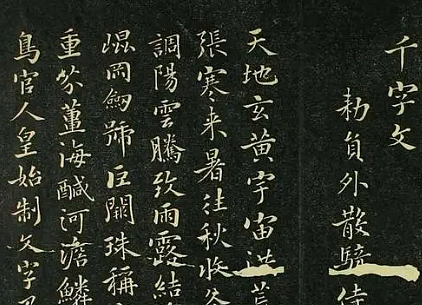 千字文
勑員外散騎侍
天地玄黃宇宙洪荒
張寒来暑往秋收冬
調陽雲騰致雨露結
崐罡劒號巨闕珠稱
重芥薑海醎河淡鱗
鳥官人皇始制文字